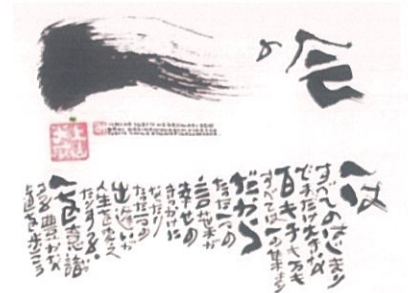 一の会
一は
すべてのはじまり
どれだけ大きな
百も千も万も
すべては一の集まり
だから
たった一つの
言葉が
幸せの
きっかけに
なったり
たった一つの
出逢いが
人生を変え
たりする。
一を意識
する豊かな
道を歩こう